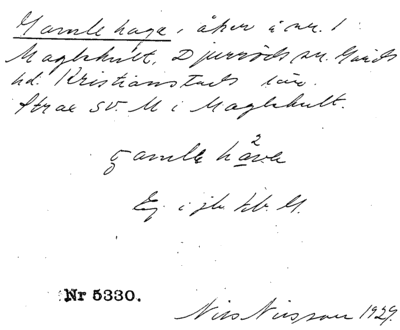 Gamle hage, åker å nr. 1
Maglekult, Djurröds sn. Gärds
hd. Kristianstads län.
Strax SV. M i Maglekult.
gamle håve
2
Ej i jb. hb. G.
Nr 5330.
Nils Nilsson 1929.